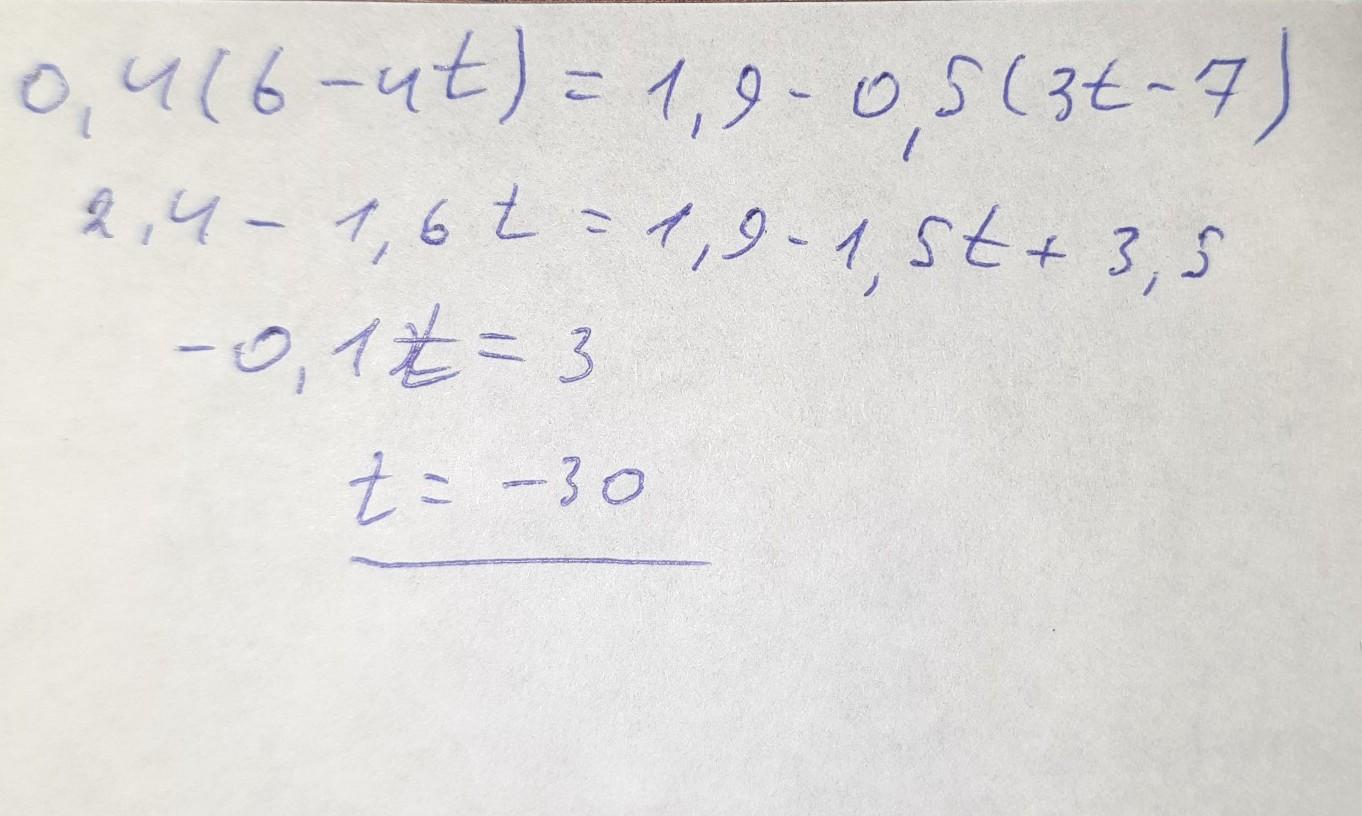 0,4(6-4t)=1,9-0,5(3t-7)
2,4-1,6t=1,9-1,5t+3,5
-0,1t=3
t=-30